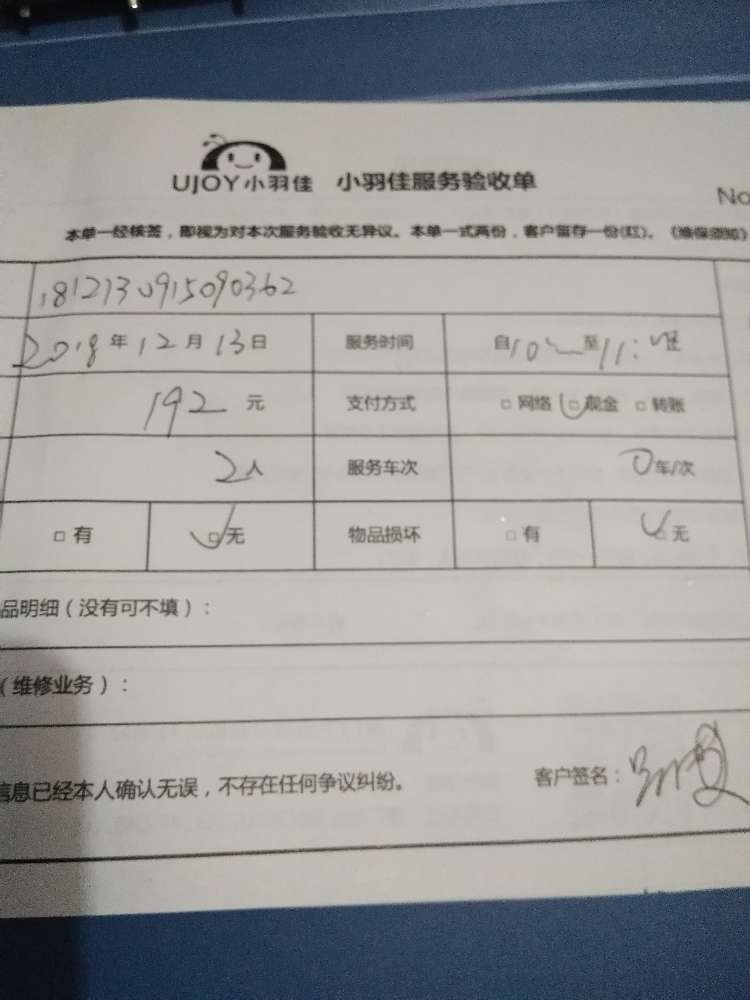 UJOY小羽佳 小羽佳服务验收单
No
本单一经核签，即视为对本次服务验收无异议。本单一式两份，客户留存一份(红)。《维保须知》
181213 0915090362
2018年12月13日 服务时间 自10 至11:
192元 支付方式 □网络 □现金 □转账
2人 服务车次 0车/次
□有 □无 物品损坏 □有 □无
品明细（没有可不填）：
（维修业务）：
信息已经本人确认无误，不存在任何争议纠纷。 客户签名：